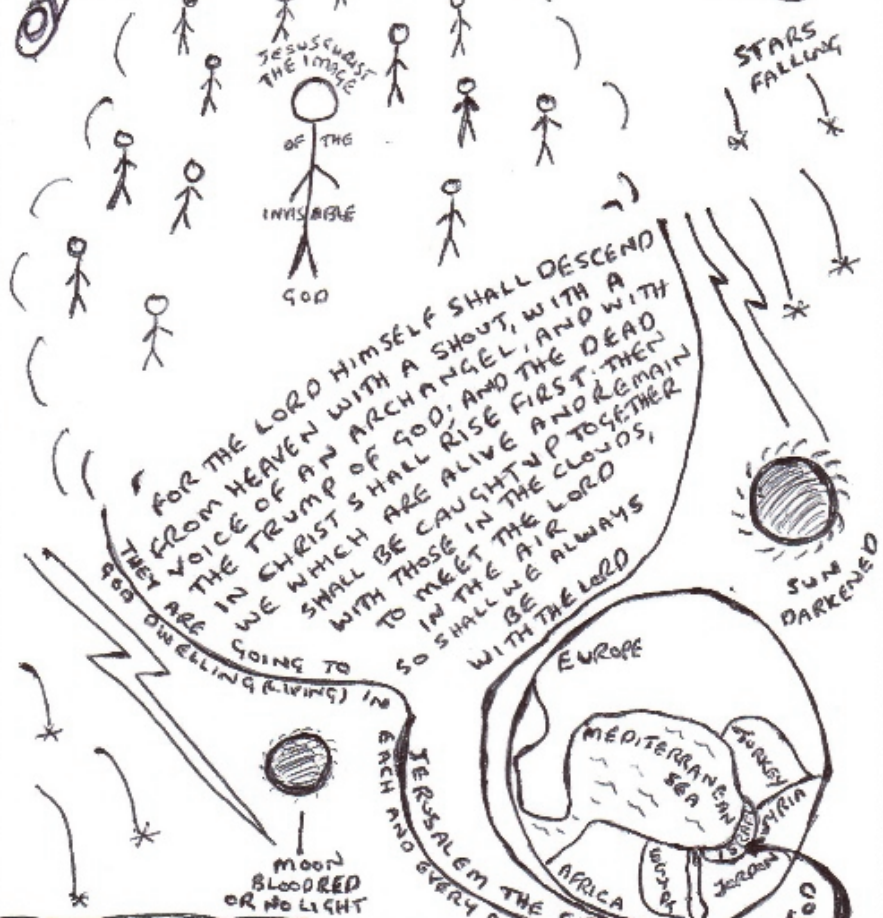 JESUS CHRIST
THE IMAGE
OF THE
INVISIBLE
GOD
STARS
FALLING
FOR THE LORD HIMSELF SHALL DESCEND
FROM HEAVEN WITH A SHOUT, WITH A
VOICE OF AN ARCHANGEL, AND WITH
THE TRUMP OF GOD; AND THE DEAD
IN CHRIST SHALL RISE FIRST: THEN
WE WHICH ARE ALIVE AND REMAIN
SHALL BE CAUGHT UP TOGETHER
WITH THOSE IN THE CLOUDS,
TO MEET THE LORD
IN THE AIR
SO SHALL WE ALWAYS
BE
WITH THE LORD
THEY ARE GOING TO
GOD DWELLING (LIVING) IN
EACH AND EVERY
JERUSALEM THE
SUN
DARKENED
MOON
BLOODRED
OR NO LIGHT
EUROPE
MEDITERRANEAN
SEA
TURKEY
SYRIA
ISRAEL
JORDON
EGYPT
AFRICA